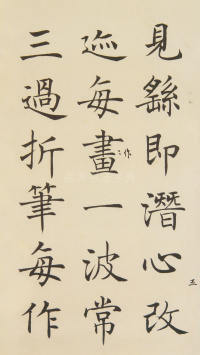 見繇即潛心改
迹每畫一波常
三過折筆每作
作
五